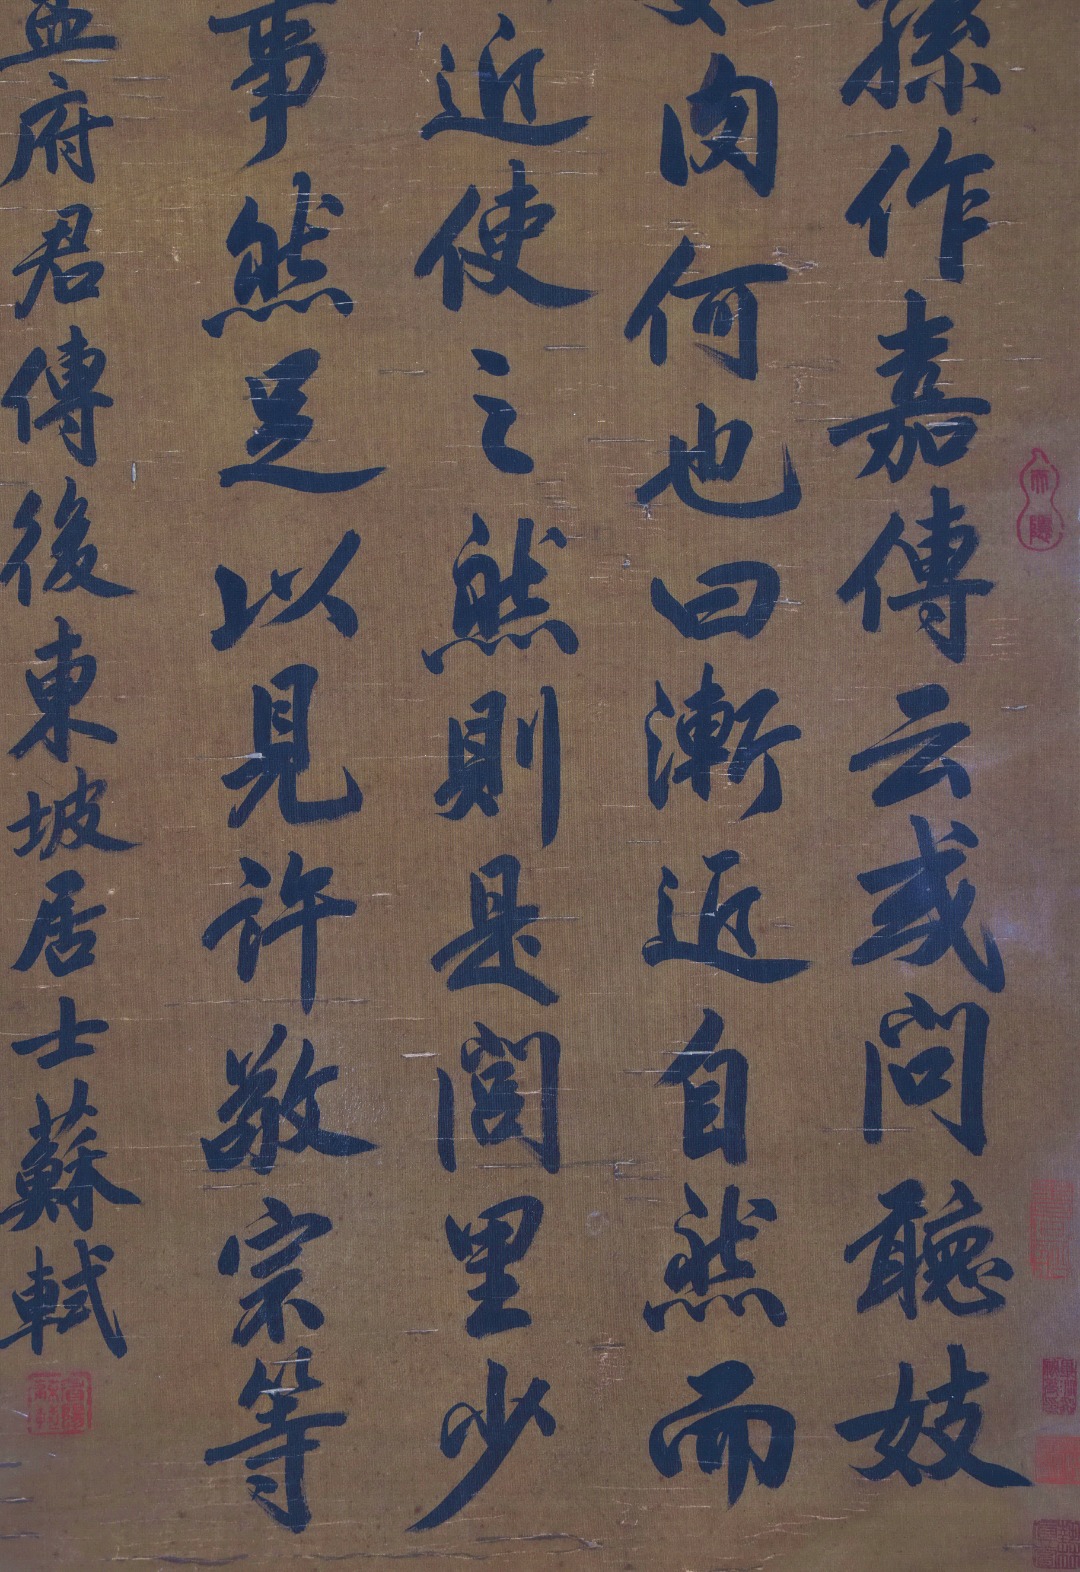 孫作嘉傳云或問聽妓
肉何也曰漸近自然而
近使之然則是閭里少
事然足以見許敬宗等
孟府君傳後東坡居士蘇軾